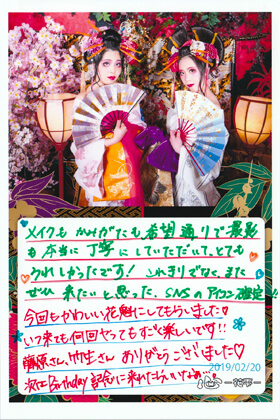 メイクも かみがたも希望通りで撮影
も本当に丁寧にしていただいて、とても
うれしかったです！ これきりでなく、また
ぜひ 来たいと思った。SNSのアイコン確定
今回もかわいい花魁にしてもらいました♡
いつ来ても何回やってもすごく楽しいです!!
藤原さん、竹生さん ありがとうございました♡
次はBirthday記念に来れたらいいな
2019/02/20